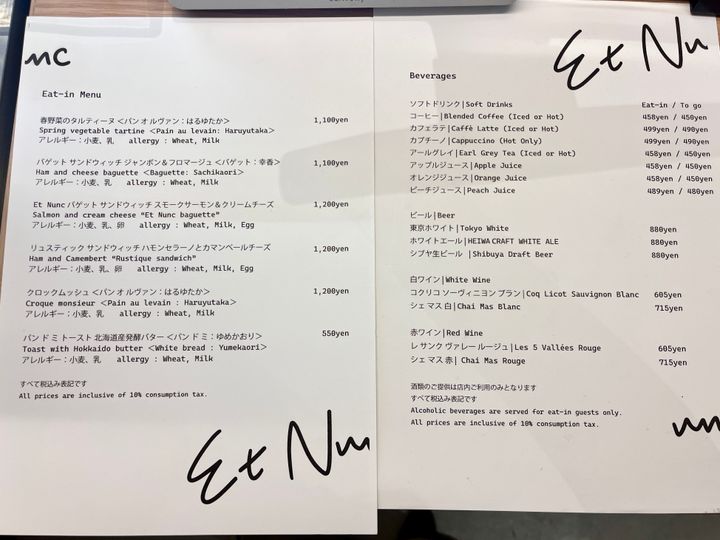 nc
Eat-in Menu
春野菜のタルティーヌ <パン オ ルヴァン：はるゆたか> 1,100yen
Spring vegetable tartine <Pain au levain: Haruyutaka>
アレルギー：小麦、乳 allergy : Wheat, Milk
バゲット サンドウィッチ ジャンボン＆フロマージュ <バゲット：幸香> 1,100yen
Ham and cheese baguette <Baguette: Sachikaori>
アレルギー：小麦、乳 allergy : Wheat, Milk
Et Nunc バゲット サンドウィッチ スモークサーモン＆クリームチーズ 1,200yen
Salmon and cream cheese "Et Nunc baguette"
アレルギー：小麦、乳、卵 allergy : Wheat, Milk, Egg
リュスティック サンドウィッチ ハモンセラーノとカマンベールチーズ 1,200yen
Ham and Camembert "Rustique sandwich"
アレルギー：小麦、乳、卵 allergy : Wheat, Milk, Egg
クロックムッシュ <パン オ ルヴァン：はるゆたか> 1,200yen
Croque monsieur <Pain au levain : Haruyutaka>
アレルギー：小麦、乳 allergy : Wheat, Milk
パン ド ミ トースト 北海道産発酵バター <パン ド ミ：ゆめかおり> 550yen
Toast with Hokkaido butter <White bread : Yumekaori>
アレルギー：小麦、乳 allergy : Wheat, Milk
すべて税込み表記です
All prices are inclusive of 10% consumption tax.
Et Nu
Et Nu
Beverages
ソフトドリンク|Soft Drinks Eat-in / To go
コーヒー|Blended Coffee (Iced or Hot) 458yen / 450yen
カフェラテ|Caffè Latte (Iced or Hot) 499yen / 490yen
カプチーノ|Cappuccino (Hot Only) 499yen / 490yen
アールグレイ|Earl Grey Tea (Iced or Hot) 458yen / 450yen
アップルジュース|Apple Juice 458yen / 450yen
オレンジジュース|Orange Juice 458yen / 450yen
ピーチジュース|Peach Juice 489yen / 480yen
ビール|Beer
東京ホワイト|Tokyo White 880yen
ホワイトエール|HEIWA CRAFT WHITE ALE 880yen
シブヤ生ビール |Shibuya Draft Beer 880yen
白ワイン|White Wine
コクリコ ソーヴィニヨン ブラン|Coq Licot Sauvignon Blanc 605yen
シェ マス 白|Chai Mas Blanc 715yen
赤ワイン|Red Wine
レ サンク ヴァレー ルージュ|Les 5 Vallées Rouge 605yen
シェ マス 赤| Chai Mas Rouge 715yen
酒類のご提供は店内ご利用のみとなります
すべて税込み表記です
Alcoholic beverages are served for eat-in guests only.
All prices are inclusive of 10% consumption tax.